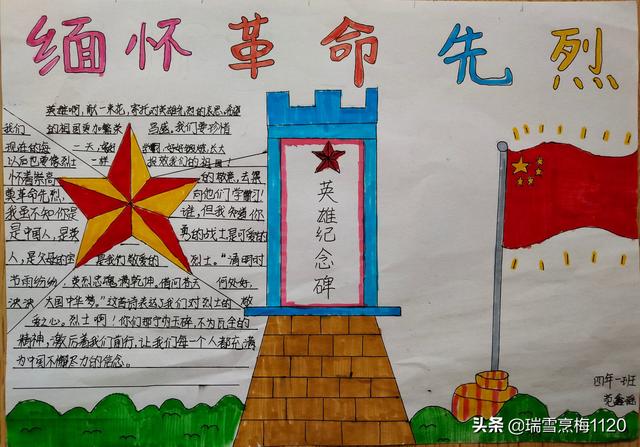 缅怀革命先烈
英雄啊,献一朵花,寄托对英雄先烈的哀思,希望
我们 的祖国更加繁荣 昌盛。我们要珍惜
现在的每 一天,好好锻炼,长大
以后也要像烈士 一样 报效我们的祖国!
怀着崇高 的敬意,去祭
奠革命先烈, 向他们学习!
我虽不知你是 谁,但我知道你
是中国人,是英 勇的战士是可爱的
人,是父母的 是我们敬爱的 烈士。“清明时
节雨纷纷, 英烈忠魂满乾坤。借问 何处好,
泱泱 大国中华梦。”这首诗表达了我们对烈士的 敬
爱之心。烈士啊!你们那宁为玉碎,不为瓦全的
精神,激励着我们前行,让我们每一个人都充满
为中国不懈尽力的信念。
英雄纪念碑
四年一班
头条 @瑞雪烹梅1120